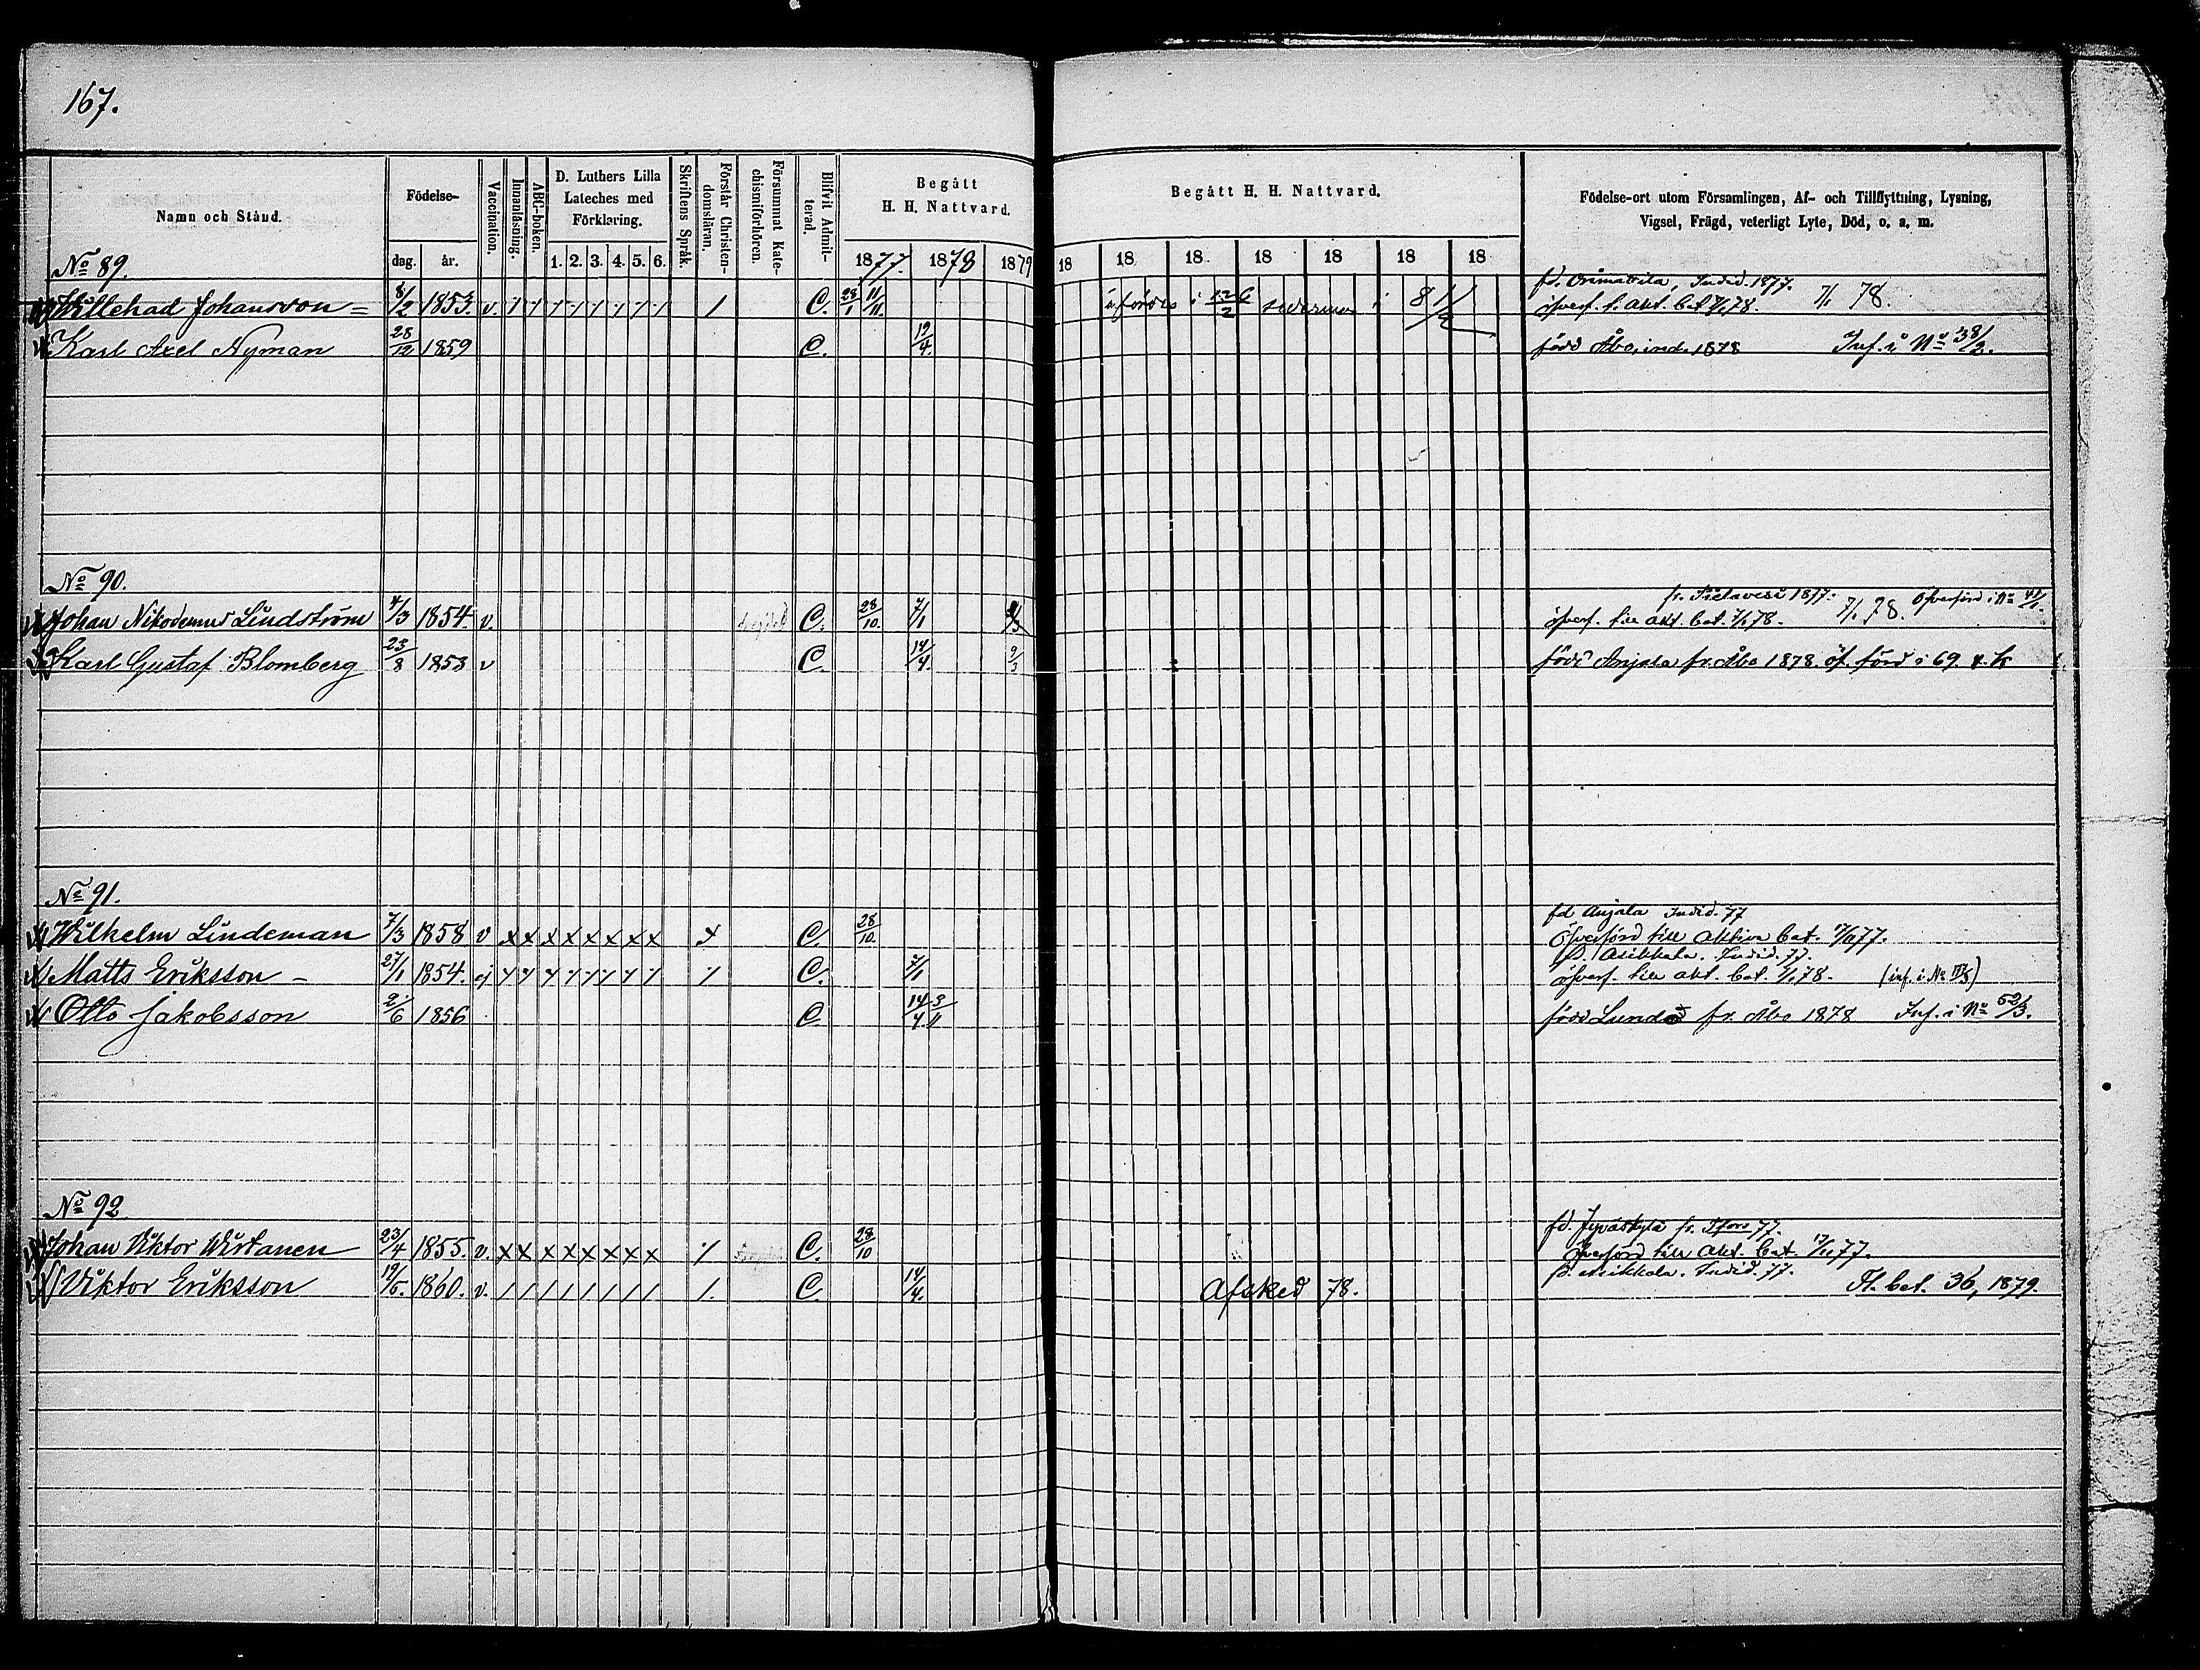 167.
Namn och Stånd.
Födelse-
dag. år.
Vaccination.
Innanläsning.
ABC-boken.
D. Luthers Lilla
Lateches med
Förklaring.
1. 2. 3. 4. 5. 6.
Skriftens Språk.
Förstår Christen-
domsläran.
Försummat Kate-
chismiförhören.
Blifvit Admit-
terad.
Begått
H. H. Nattvard.
1877. 1878 1879
Begått H. H. Nattvard.
18 18 18 18 18 18 18
Födelse-ort utom Församlingen, Af- och Tillflyttning, Lysning,
Vigsel, Frägd, veterligt Lyte, Död, o. a. m.
No 89.
fd. Orimattila, Indid. 1877.
Willehad Johansson = 8/2 1853. v. C. 28/1 11/11. införd i 126/2 sedermera i 81/4 öfverf. t. akt. bet 7/1 78. 7/1 78.
Karl Axel Nyman 28/12 1859 C. 19/4. född Åbo, ind. 1878 Inf. i No 38/2.
No 90.
fr. Pielavesi 1877. Öfverförd i No 41/1.
Johan Nikodemus Lindström 4/3 1854. v. C. 28/10. 7/1 öfverf. till akt. bat. 7/1 78. 7/1 78.
Karl Gustaf Blomberg 23/8 1853 v C. 14/4. 9/3 född Anjala fr. Åbo 1878. öf. förd i 69. 4. K
No 91.
fd Anjala Indid. 77
Wilhelm Lindeman 7/3 1858 v x x x x x x x x C. 28/10. Öfverförd till Aktiva bat. 77.
fd. Asikkala. Indid. 77.
Matts Eriksson 27/1 1854. ej C. 7/1 öfverf. till akt. bat. 7/1 78. (inf. i No
Otto Jakobsson 2/6 1856 C 14/4 3/11 född Lund fr. Åbo 1878 Inf. i No 52/3.
No 92
fd. Jyväskylä fr. Tfors 77.
Johan Viktor Wirtanen 23/4 1855. v. x x x x x x x x C. 28/10 Öfverförd till Akt. bat. 77.
fd. Asikkala. Indid. 77.
Viktor Eriksson 19/5. 1860. v. C. 14/4. Afsked 78. Fl. bet. 36, 1879.